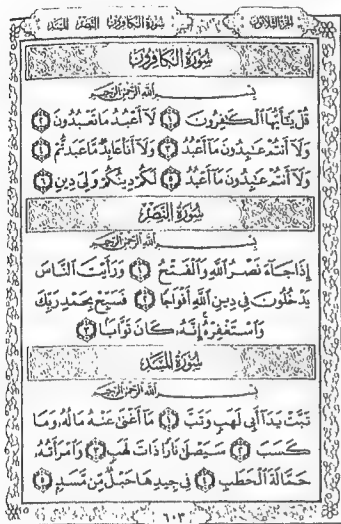 الجزء الثلاثون
سورة الكافرون النصر المسد
سُورَةُ الكَافِرُونَ
بِسْمِ اللَّهِ الرَّحْمَٰنِ الرَّحِيمِ
قُلْ يَٰٓأَيُّهَا ٱلْكَٰفِرُونَ ١ لَآ أَعْبُدُ مَا تَعْبُدُونَ ٢
وَلَآ أَنتُمْ عَٰبِدُونَ مَآ أَعْبُدُ ٣ وَلَآ أَنَا۠ عَابِدٌ مَّا عَبَدتُّمْ ٤
وَلَآ أَنتُمْ عَٰبِدُونَ مَآ أَعْبُدُ ٥ لَكُمْ دِينُكُمْ وَلِىَ دِينِ ٦
سُورَةُ النَّصْرِ
بِسْمِ اللَّهِ الرَّحْمَٰنِ الرَّحِيمِ
إِذَا جَآءَ نَصْرُ ٱللَّهِ وَٱلْفَتْحُ ١ وَرَأَيْتَ ٱلنَّاسَ
يَدْخُلُونَ فِى دِينِ ٱللَّهِ أَفْوَاجًا ٢ فَسَبِّحْ بِحَمْدِ رَبِّكَ
وَٱسْتَغْفِرْهُ إِنَّهُۥ كَانَ تَوَّابًۢا ٣
سُورَةُ المَسَدِ
بِسْمِ اللَّهِ الرَّحْمَٰنِ الرَّحِيمِ
تَبَّتْ يَدَآ أَبِى لَهَبٍ وَتَبَّ ١ مَآ أَغْنَىٰ عَنْهُ مَالُهُۥ وَمَا
كَسَبَ ٢ سَيَصْلَىٰ نَارًا ذَاتَ لَهَبٍ ٣ وَٱمْرَأَتُهُۥ
حَمَّالَةَ ٱلْحَطَبِ ٤ فِى جِيدِهَا حَبْلٌ مِّن مَّسَدٍۭ ٥
٦٠٣